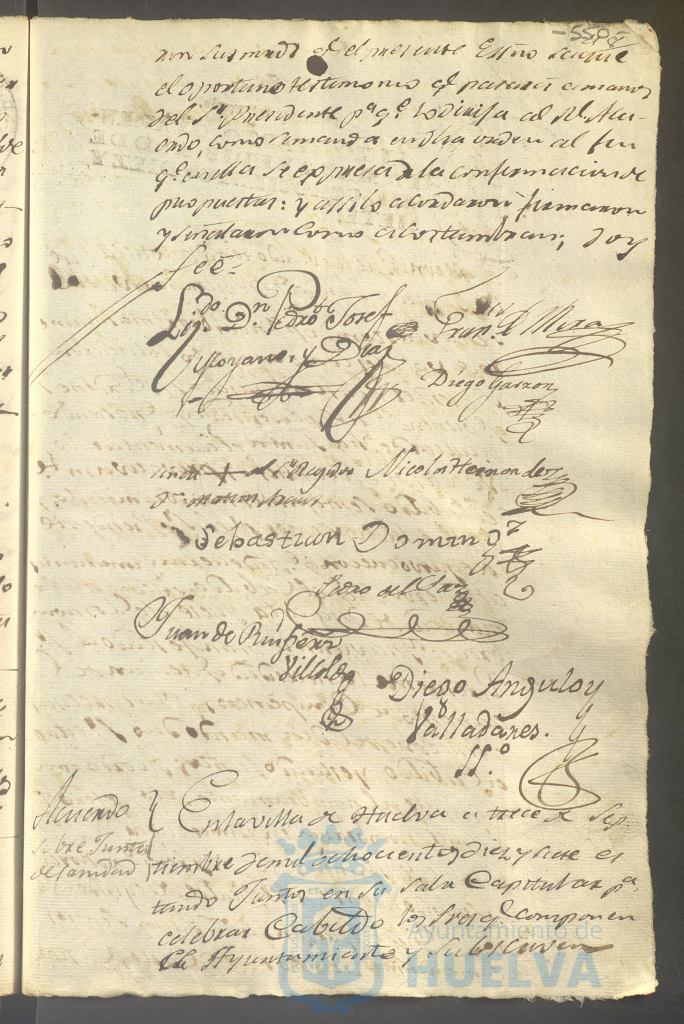 el presente Essno saque
el oportuno testimonio q.e pararà a manos
del S.or Presidente p.a q.e lo dirija al Rl. Acu-
erdo, como se manda en dha orden al fin
q.e en ella se expresa de la confirmacion de
propuestas: y assi lo acordaron firmaron
y señalaron como acostumbran; doy
fee.
Lizdo Dn. Pedro Josef
Moyano, y Diaz
Fran.co de Mora
Diego Garzon
señal + del Sr. Regidor
Nicolas Hernandez
Sebastian Doming.z
Pedro del
Juan de
Villalba
Diego Angulo y
Valladares.
SS.o
Acuerdo
sobre Junta
de Sanidad
En la villa de Huelva a trece de Sep
tiembre de mil ochocientos diez y siete es
tando Juntos en su sala Capitular p.a
celebrar Cabildo los Sres. q.e componen
el Ayuntamiento y subscriven
Ayuntamiento de
HUELVA